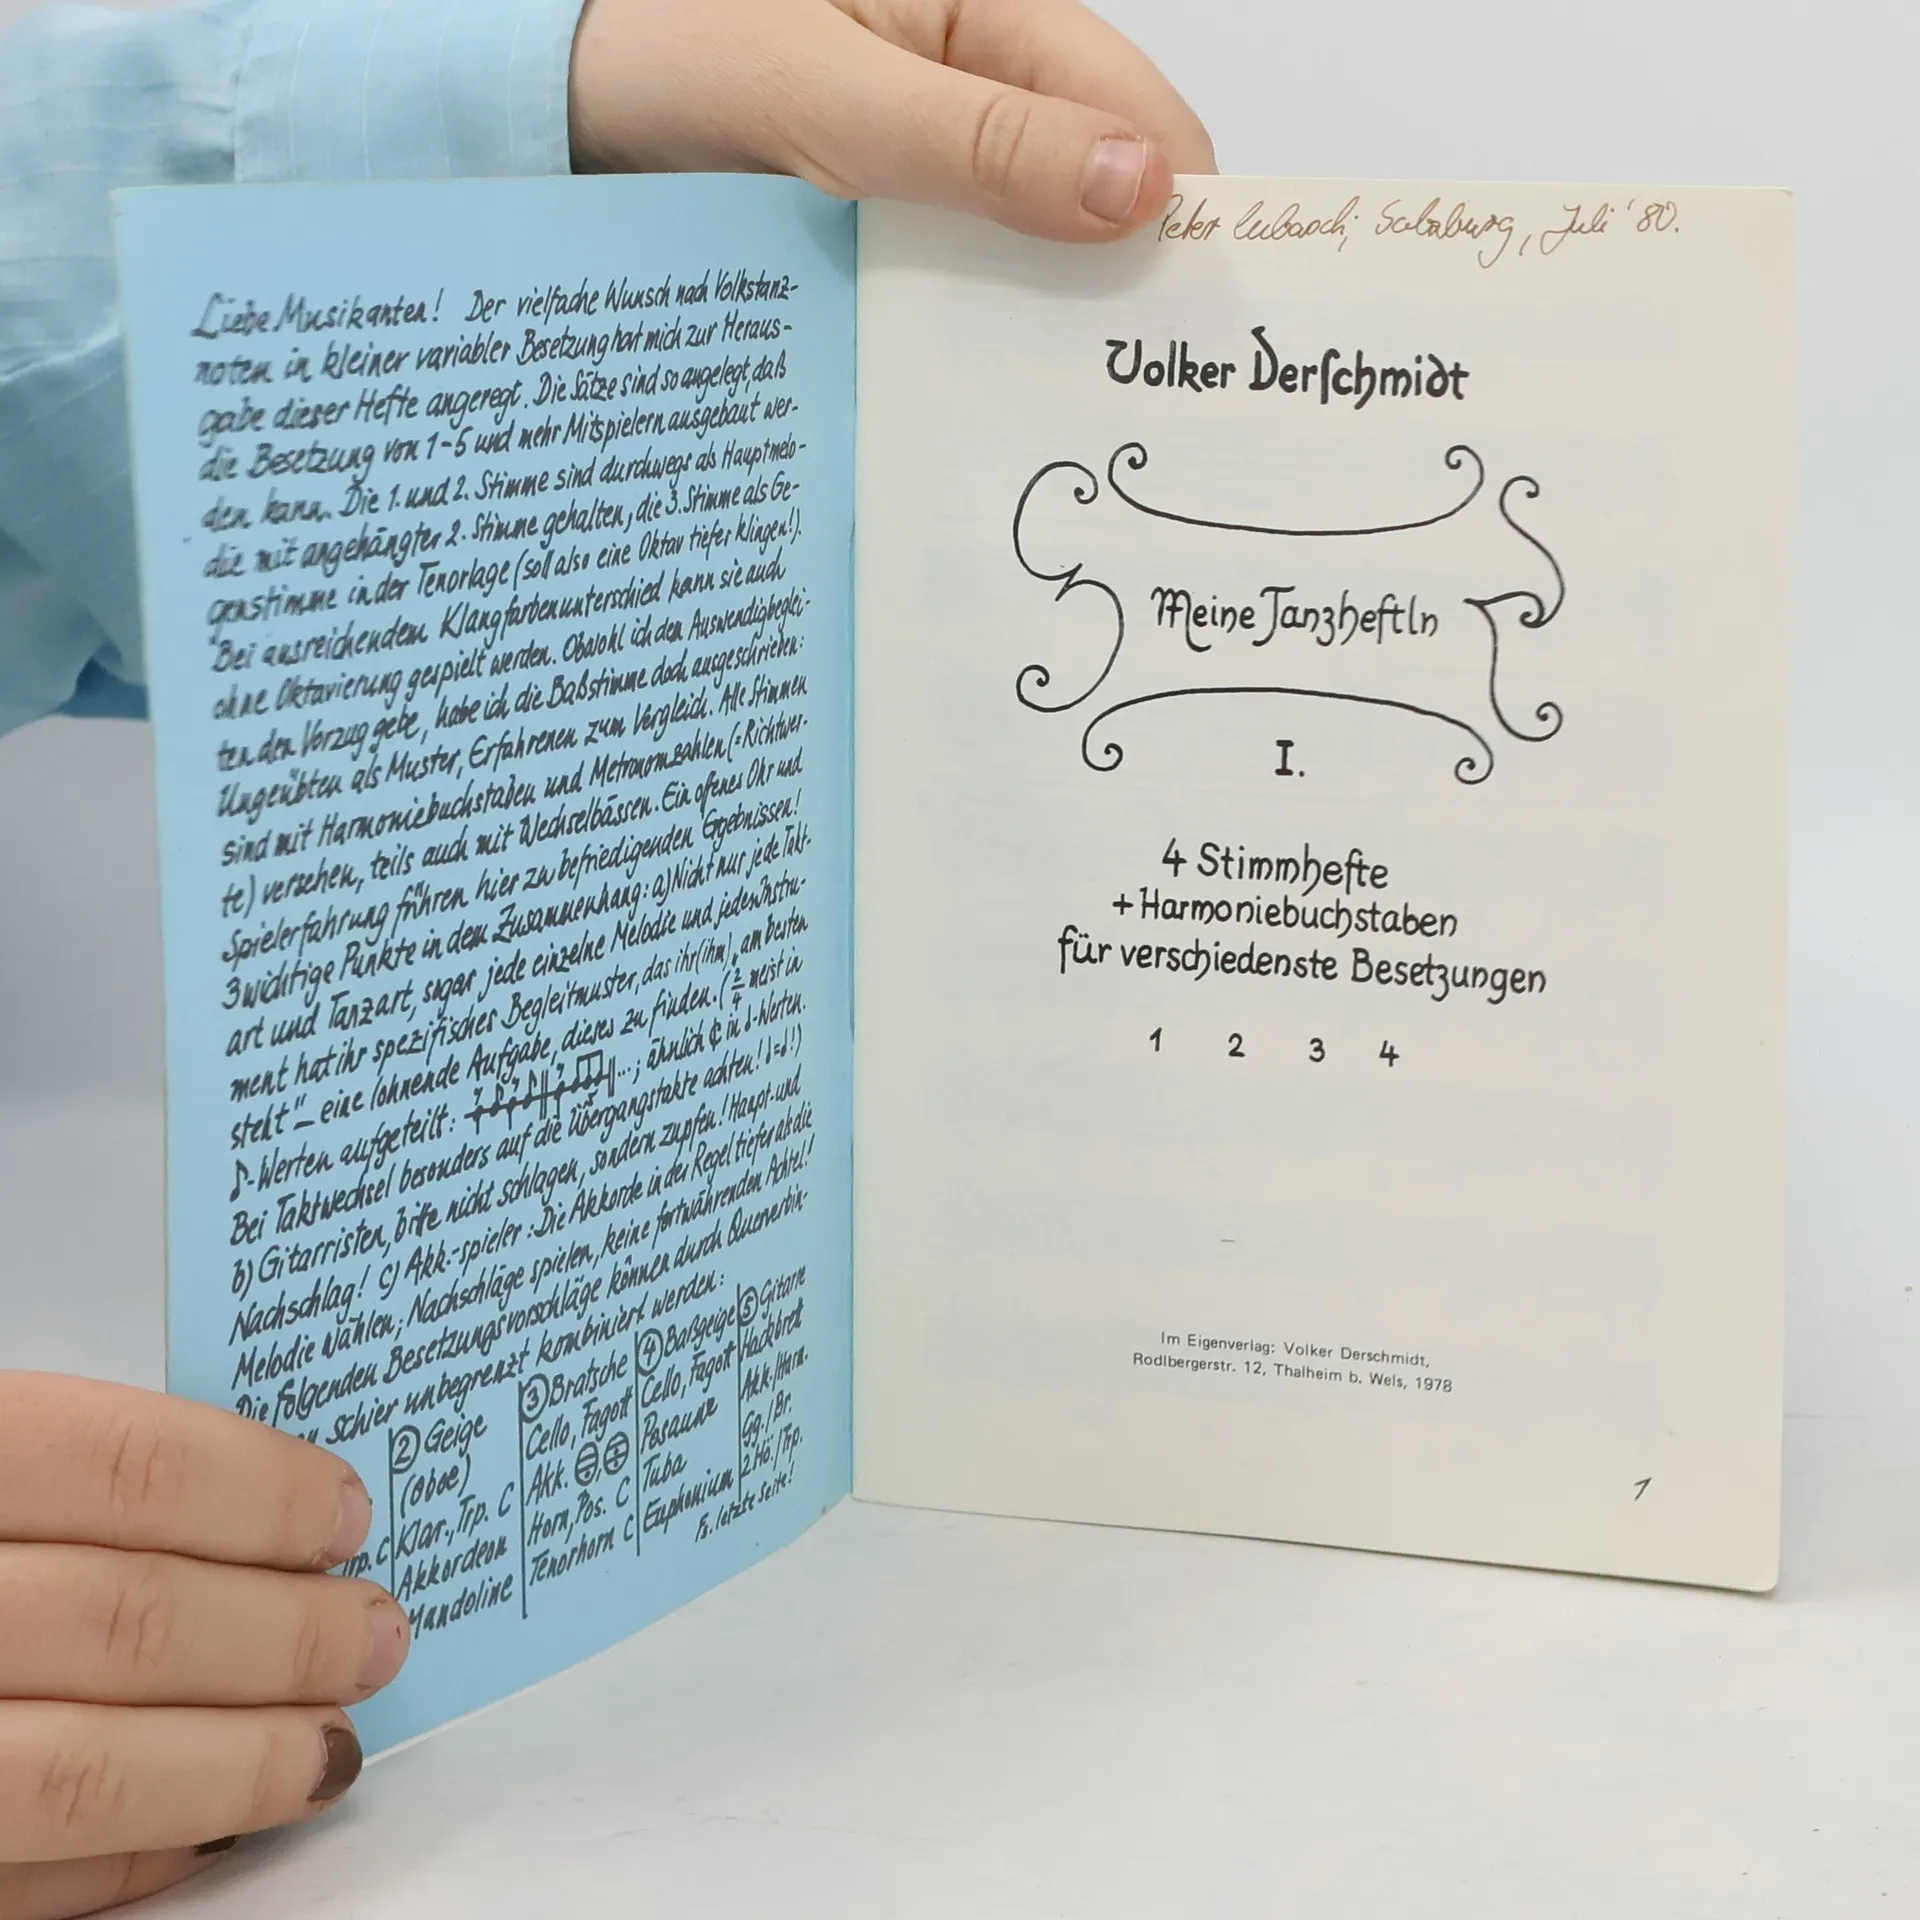 Liebe Musikanten! Der vielfache Wunsch nach Volkstanz-
noten in kleiner variabler Besetzung hat mich zur Heraus-
gabe dieser Hefte angeregt. Die Sätze sind so angelegt, daß
die Besetzung von 1-5 und mehr Mitspielern ausgebaut wer-
den kann. Die 1. und 2. Stimme sind durchwegs als Hauptmelo-
die mit angehängter 2. Stimme gehalten, die 3. Stimme als Ge-
genstimme in der Tenorlage (soll also eine Oktav tiefer klingen!).
Bei ausreichendem Klangfarbenunterschied kann sie auch
ohne Oktavierung gespielt werden. Obwohl ich den Auswendigbeglei-
ten den Vorzug gebe, habe ich die Baßstimme doch ausgeschrieben:
Ungeübten als Muster, Erfahrenen zum Vergleich. Alle Stimmen
sind mit Harmoniebuchstaben und Metronomzahlen (=Richtwer-
te) versehen, teils auch mit Wechselbässen. Ein offenes Ohr und
Spielerfahrung führen hier zu befriedigenden Ergebnissen!
3 wichtige Punkte in dem Zusammenhang: a) Nicht nur jede Takt-
art und Tanzart, sogar jede einzelne Melodie und jedes Instru-
ment hat ihr spezifisches Begleitmuster, das ihr (ihm) "am besten
steht" – eine lohnende Aufgabe, dieses zu finden. (2/4 meist in
♪-Werten aufgeteilt: ...; ähnlich ¢ in ♩-Werten.
Bei Taktwechsel besonders auf die Übergangstakte achten! ♩=♩!)
b) Gitarristen, bitte nicht schlagen, sondern zupfen! Haupt- und
Nachschlag! c) Akk.-spieler: Die Akkorde in der Regel tiefer als die
Melodie wählen; Nachschläge spielen, keine fortwährenden Achtel!
Die folgenden Besetzungsvorschläge können durch Querverbin-
schier unbegrenzt kombiniert werden:
Trp. C
② Geige
(Oboe)
Klar., Trp. C
Akkordeon
Mandoline
③ Bratsche
Cello, Fagott
Akk.
Horn, Pos. C
Tenorhorn C
④ Baßgeige
Cello, Fagott
Posaune
Tuba
Euphonium
⑤ Gitarre
Hackbrett
Akk./Harm.
Gg./Br.
2 Hö./Trp.
Fs. letzte Seite!
Peter Salzburg, Juli '80.
Volker Derschmidt
Meine Tanzheftln
I.
4 Stimmhefte
+ Harmoniebuchstaben
für verschiedenste Besetzungen
1 2 3 4
Im Eigenverlag: Volker Derschmidt,
Rodlbergerstr. 12, Thalheim b. Wels, 1978
1